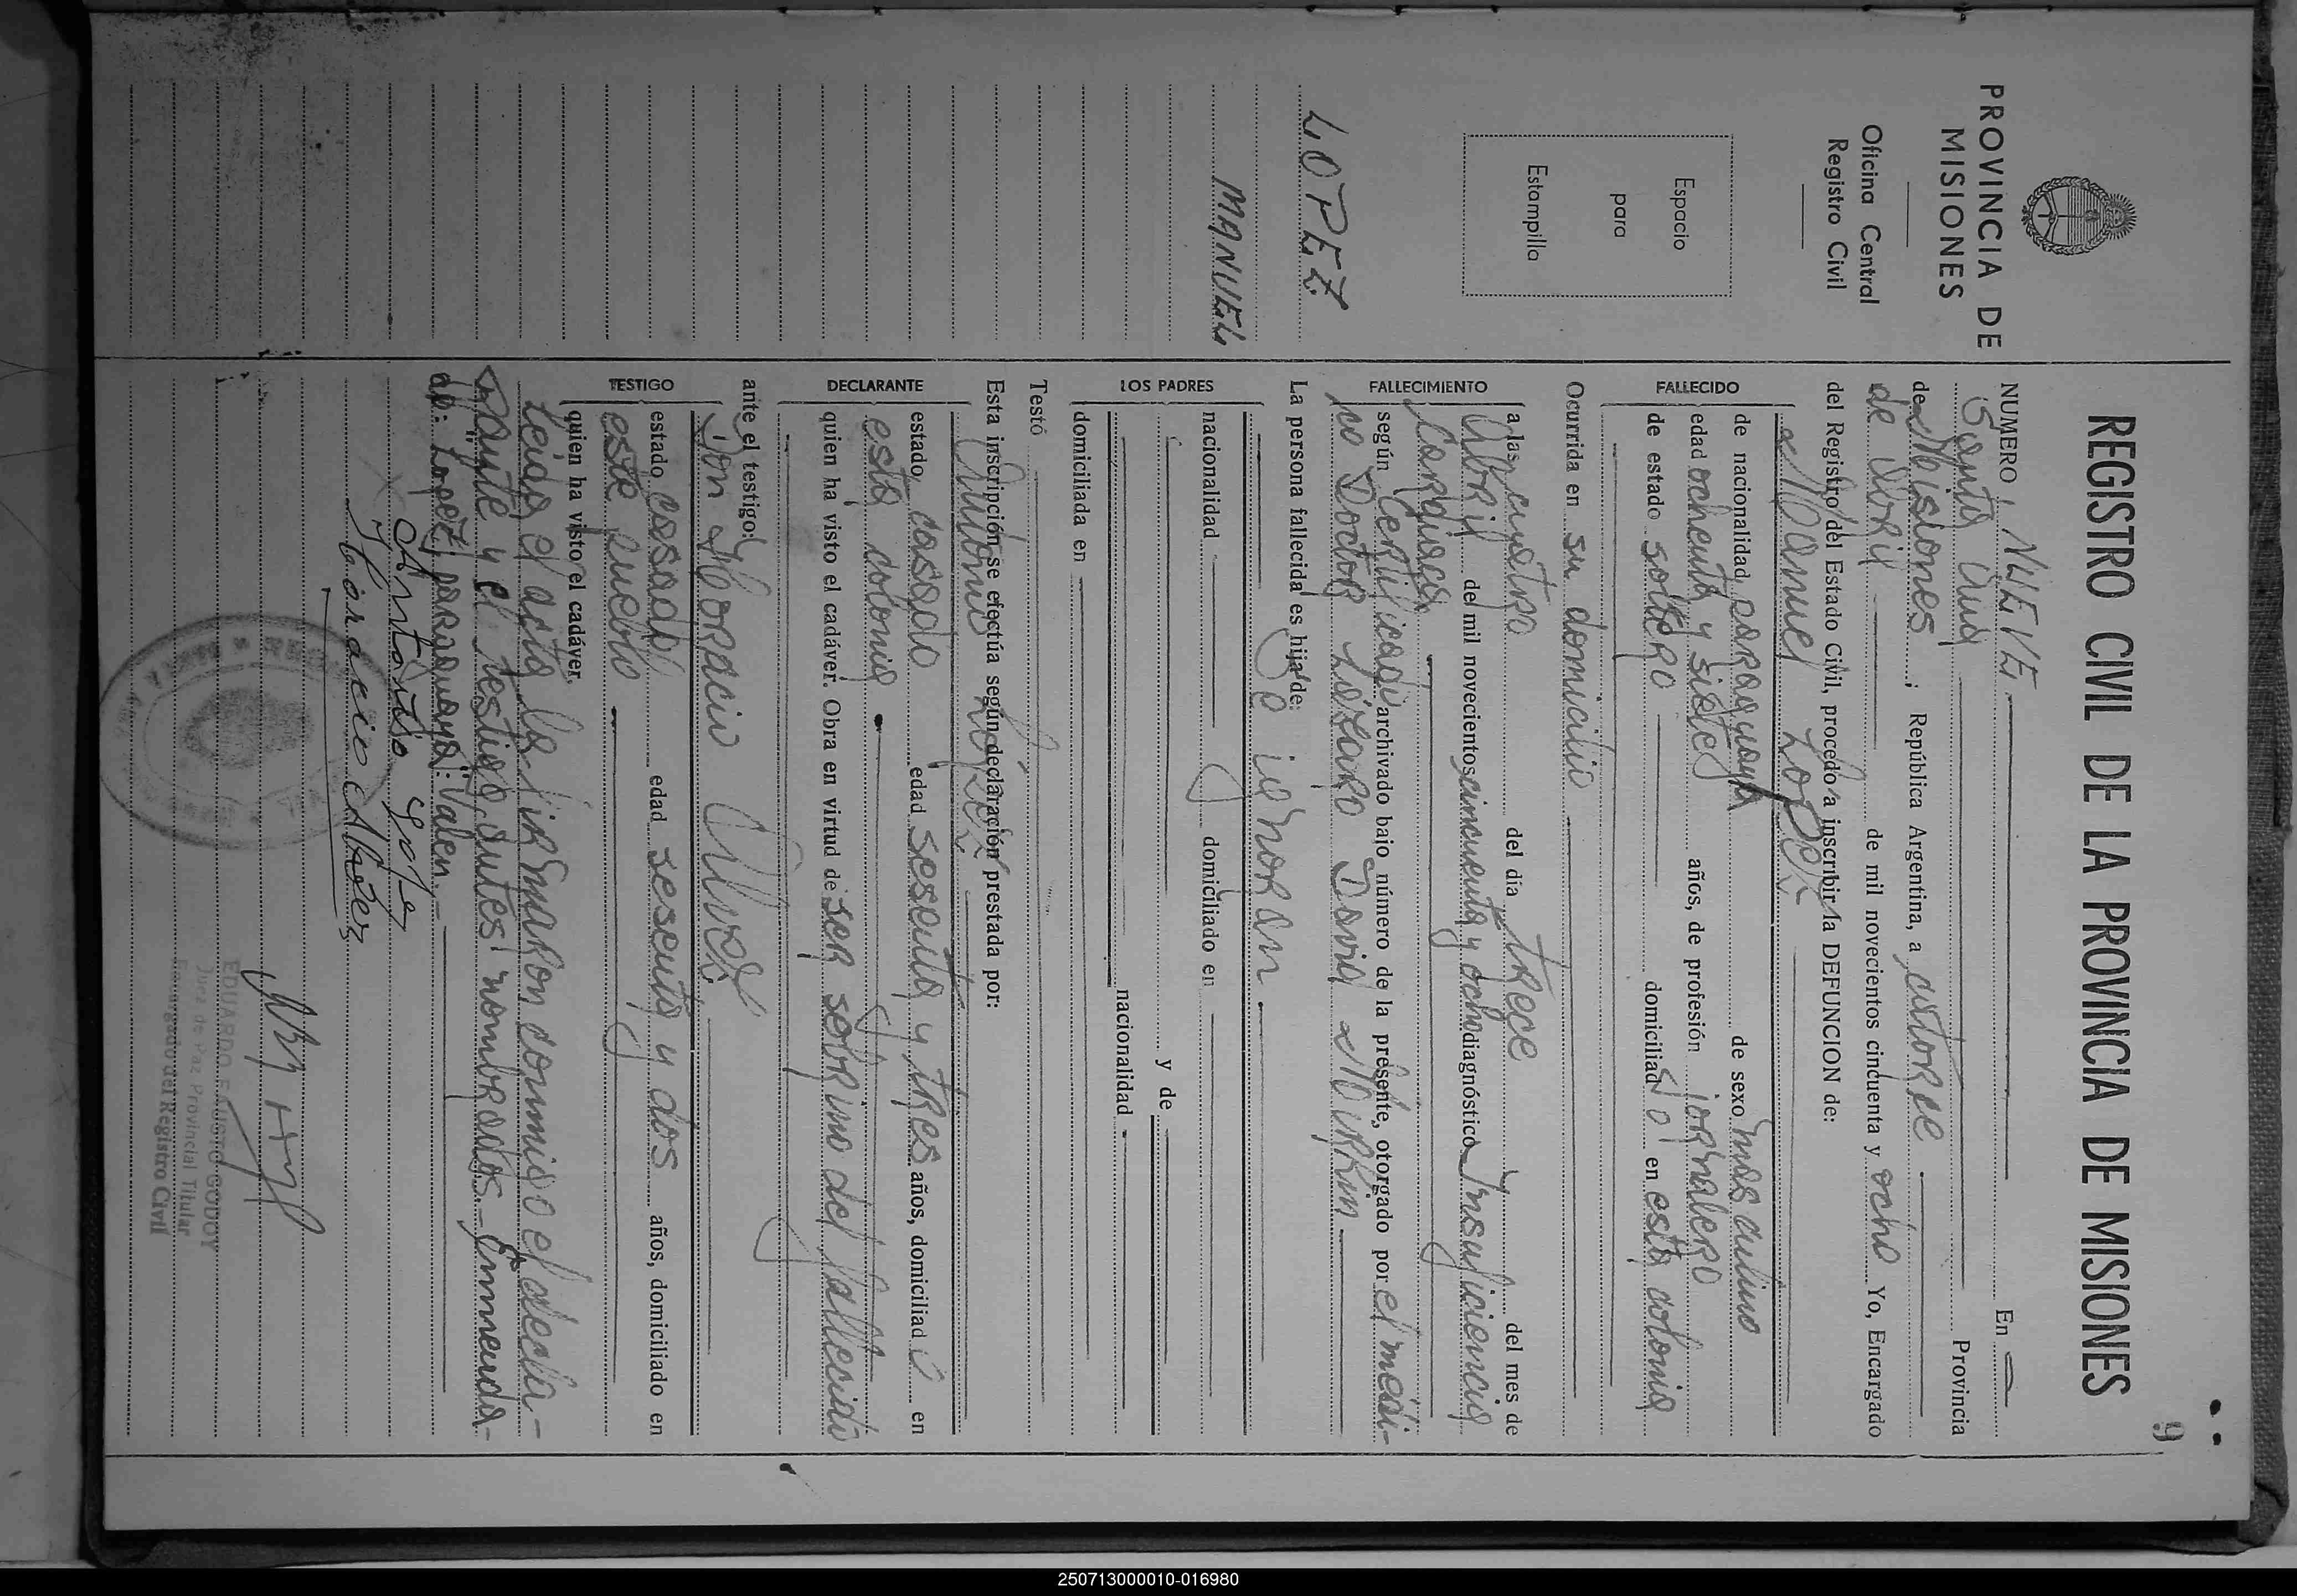 9
REGISTRO CIVIL DE LA PROVINCIA DE MISIONES
PROVINCIA DE
MISIONES
Oficina Central
Registro Civil
Espacio
para
Estampilla
LOPEZ
MANUEL
NUMERO NUEVE En
Santa Ana Provincia
de Misiones ; República Argentina, a catorce
de Abril de mil novecientos cincuenta y ocho Yo, Encargado
del Registro del Estado Civil, procedo a inscribir la DEFUNCION de:
Manuel Lopez
FALLECIDO
de nacionalidad paraguaya de sexo masculino
edad ochenta y siete años, de profesión jornalero
de estado soltero domiciliado en esta colonia
Ocurrida en su domicilio
FALLECIMIENTO
a las cuatro del día trece del mes de
Abril del mil novecientos cincuenta y ocho diagnóstico Insuficiencia
Cardiaca
según certificado archivado bajo número de la presente, otorgado por el médi-
co Doctor Lázaro
La persona fallecida es hija de: Se ignoran
LOS PADRES
nacionalidad domiciliado en
y de
nacionalidad
domiciliada en
Testó
Esta inscripción se efectúa según declaración prestada por:
DECLARANTE
Antonio López
estado casado edad sesenta y tres años, domiciliado en
esta colonia
quien ha visto el cadáver. Obra en virtud de ser sobrino del fallecido
ante el testigo:
TESTIGO
Don Horacio Alvez
estado casado edad sesenta y dos años, domiciliado en
este pueblo
quien ha visto el cadáver.
Leida el acta la firmaron conmigo el decla-
rante y el testigo antes nombrados.- Enmenda-
do: Lopez, paraguaya: Valen.-
Antonio Lopez
Horacio Alvez
EDUARDO FAUSTO GODOY
Juez de Paz Provincial Titular
Encargado del Registro Civil
250713000010-016980